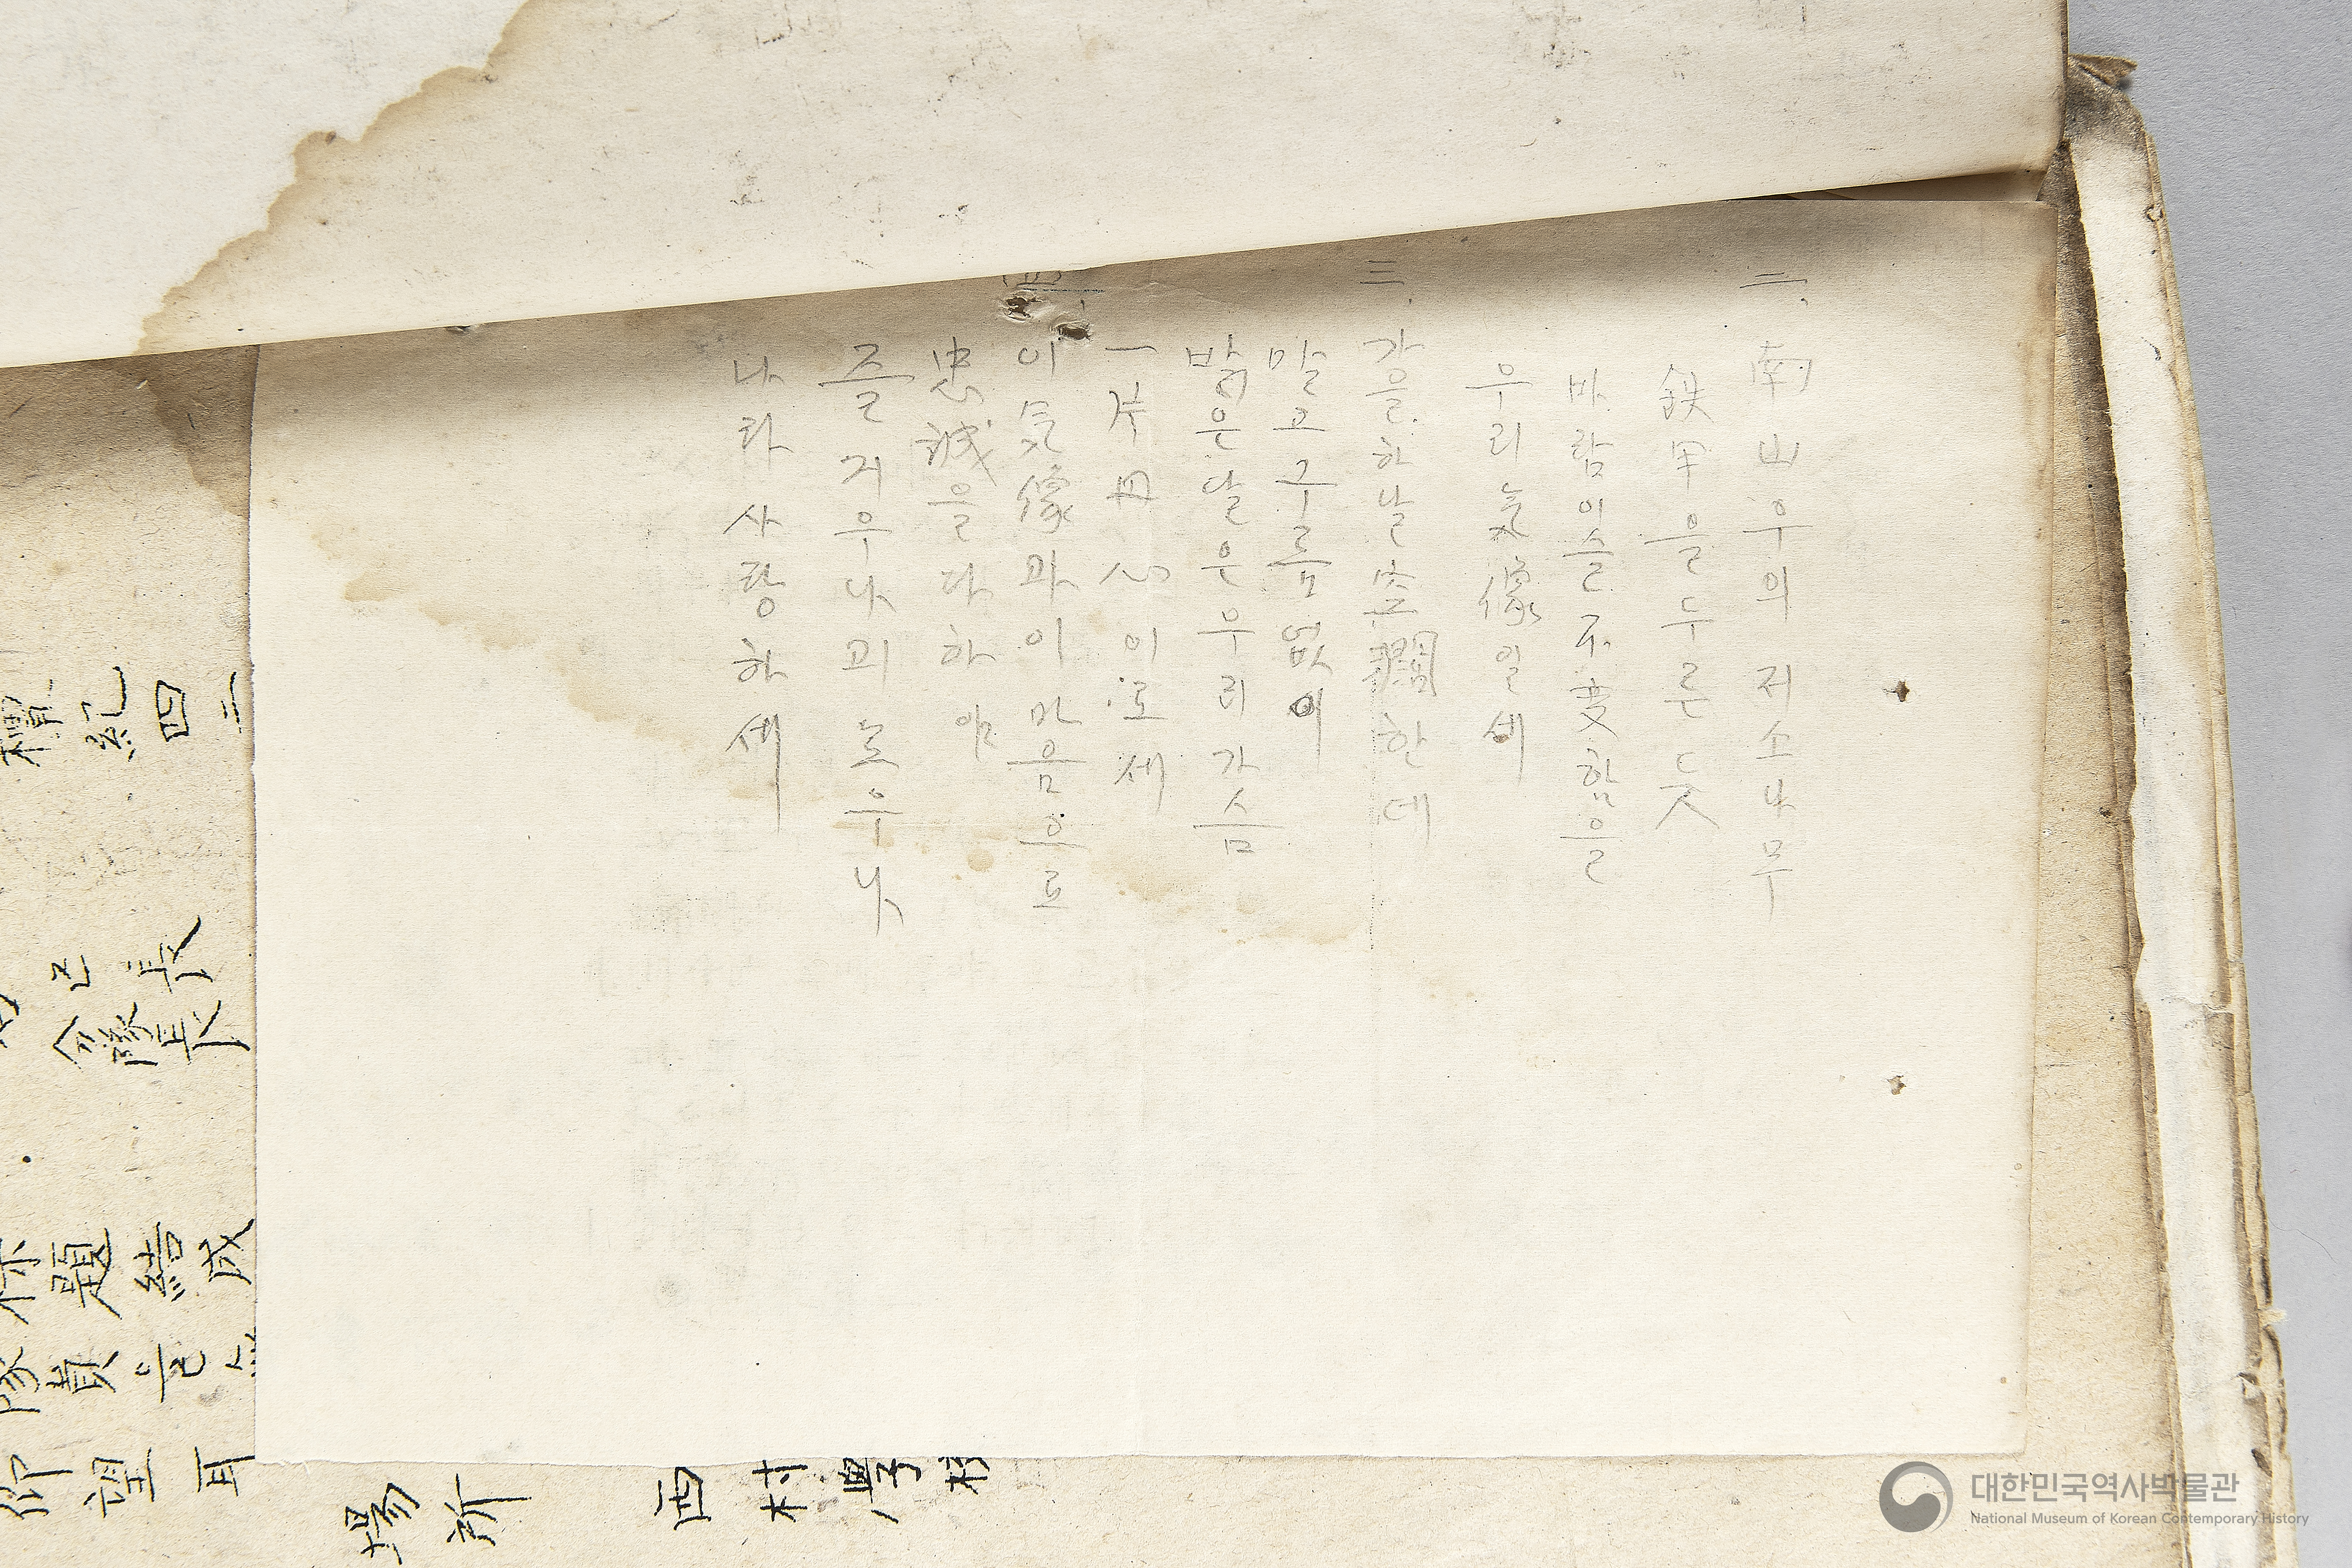 二. 南山우의저소나무
鉄甲을두룬듯
바람이슬不変함을
우리気像일세
三. 가을하날空闊한데
말고구름없이
밝은달은우리가슴
一片丹心이로세
四. 이気像과이마음으로
忠誠을다하야
즐거우나괴로우나
나라사랑하세
檀紀四二
長
分隊長
題結成
隊員은
仰望耳
場所 西村學校
대한민국역사박물관
National Museum of Korean Contemporary History